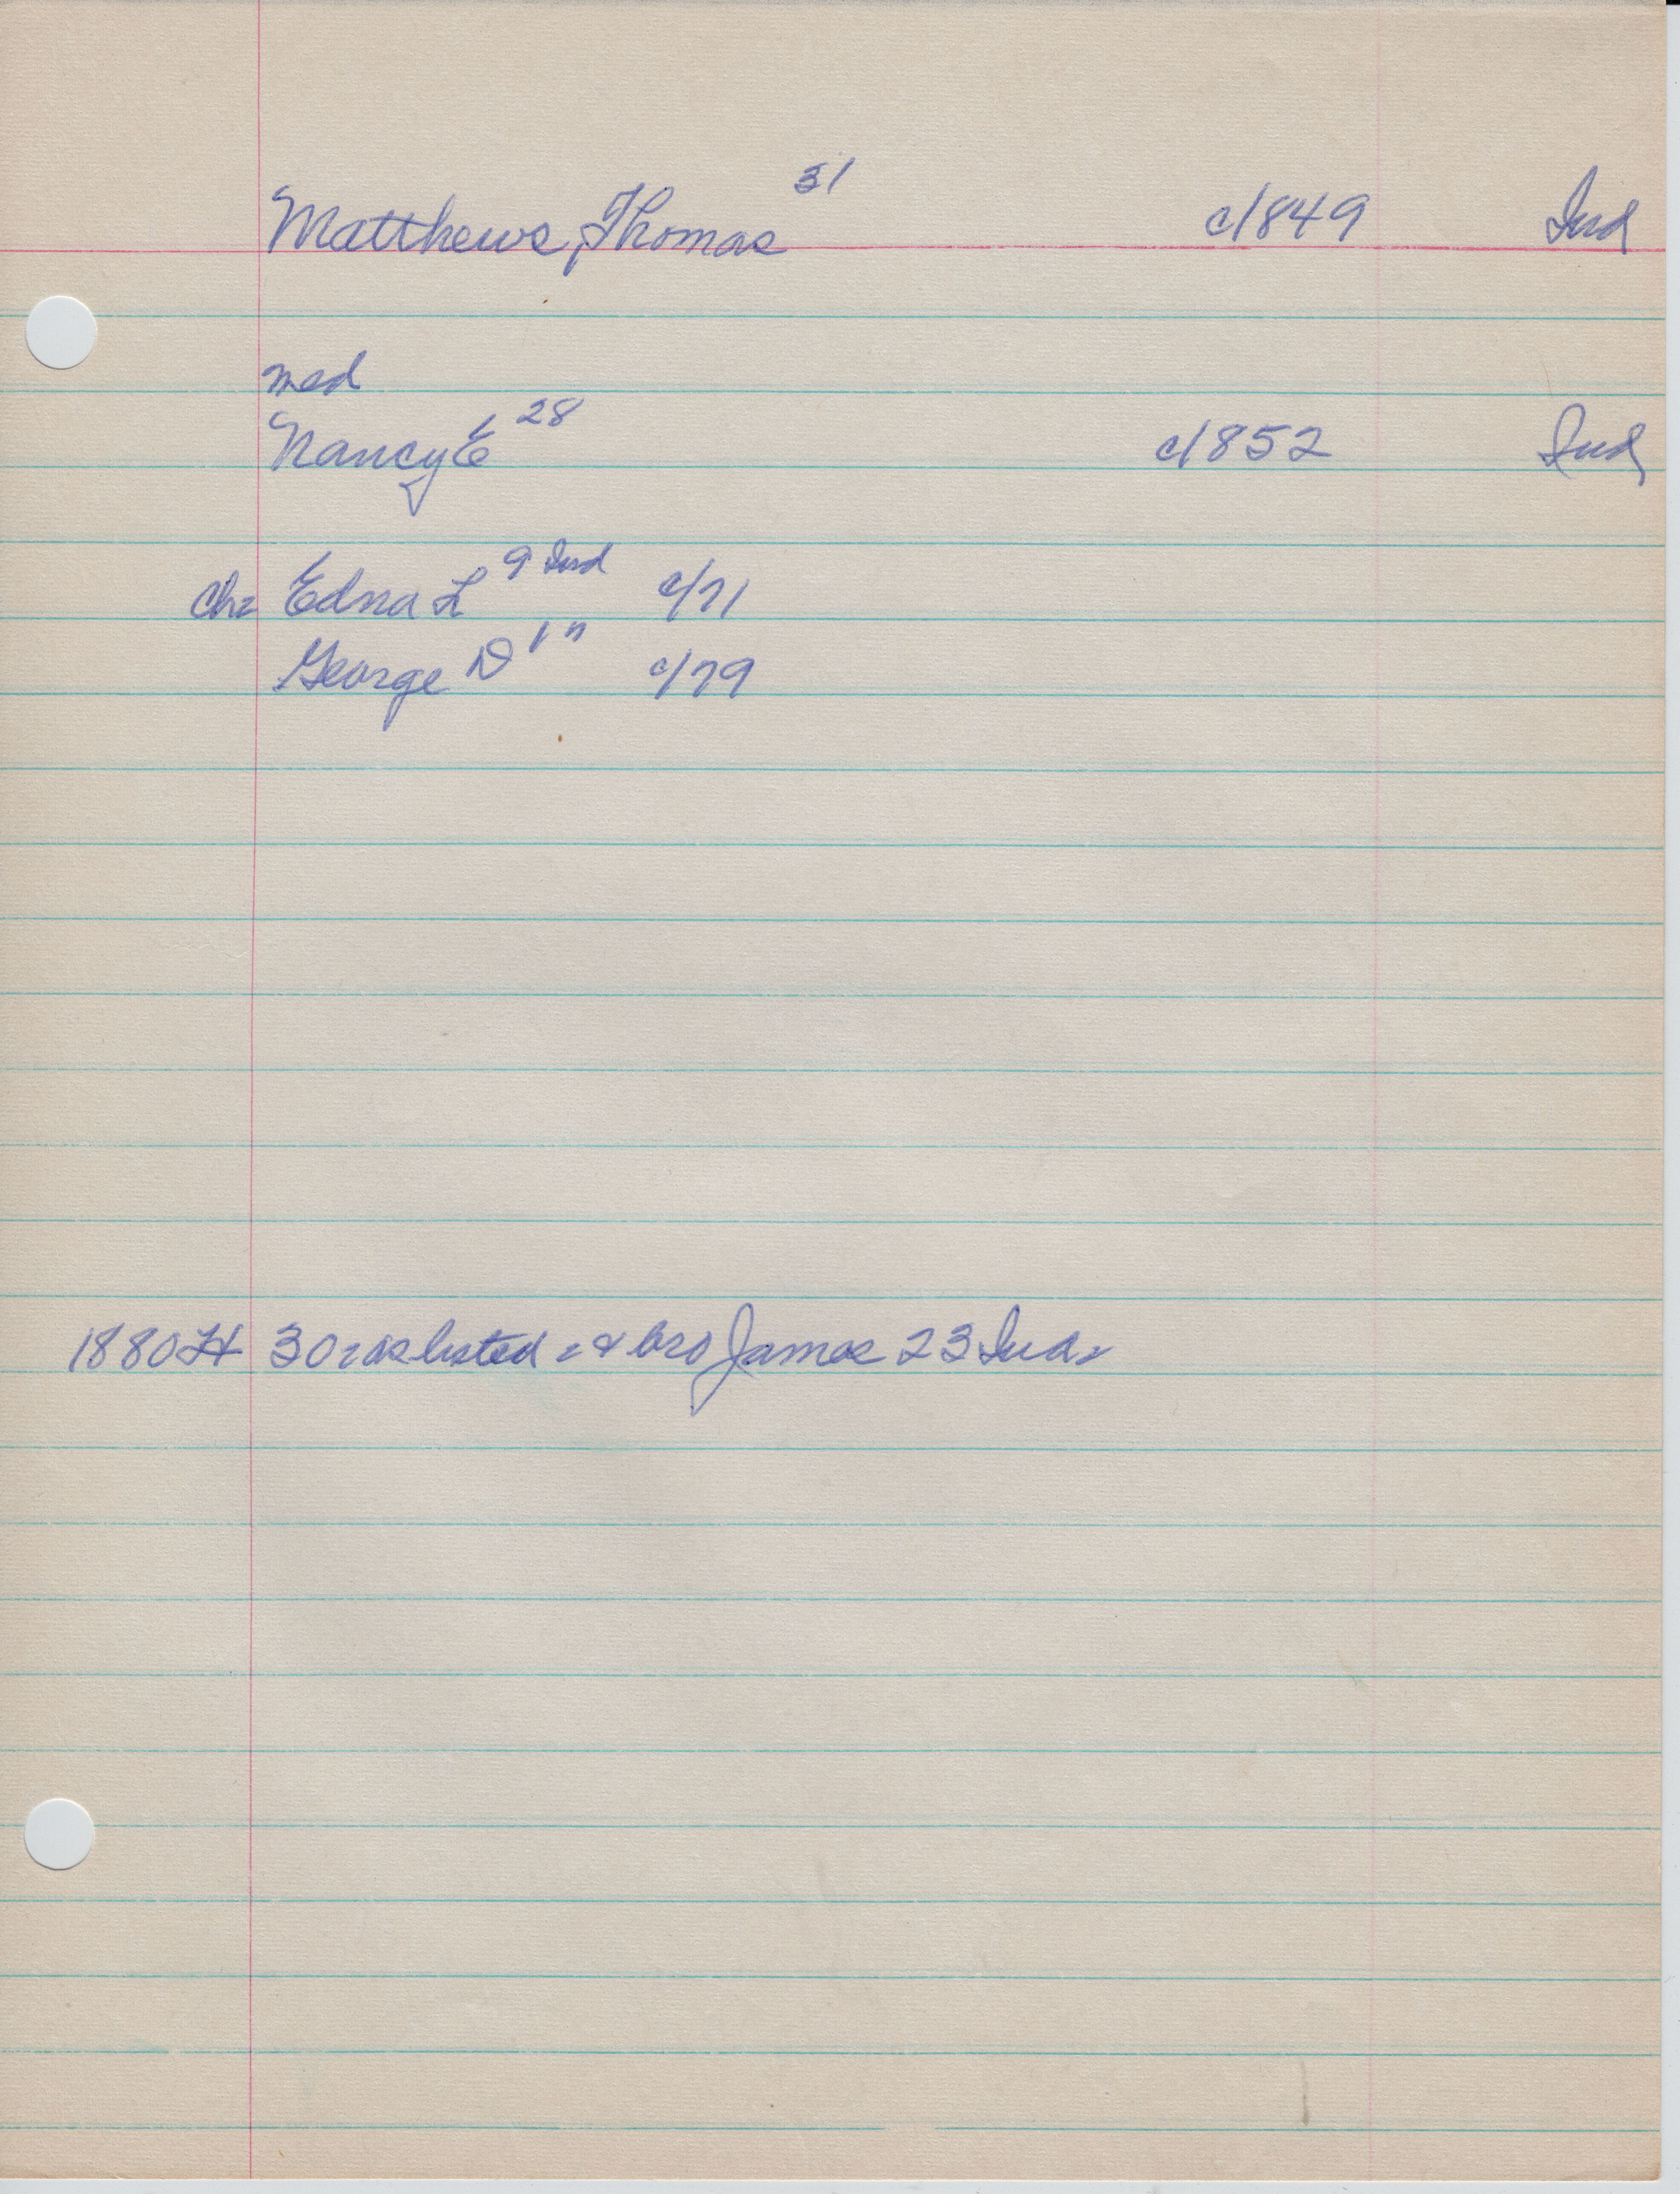 Matthews, Thomas 31 c1849 Ind
med
Nancy E 28 c1852 Ind
Ch: Edna L 9 Ind c/71
George D 1 " c/79
1880 30: as listed: & bro James 23 Ind: